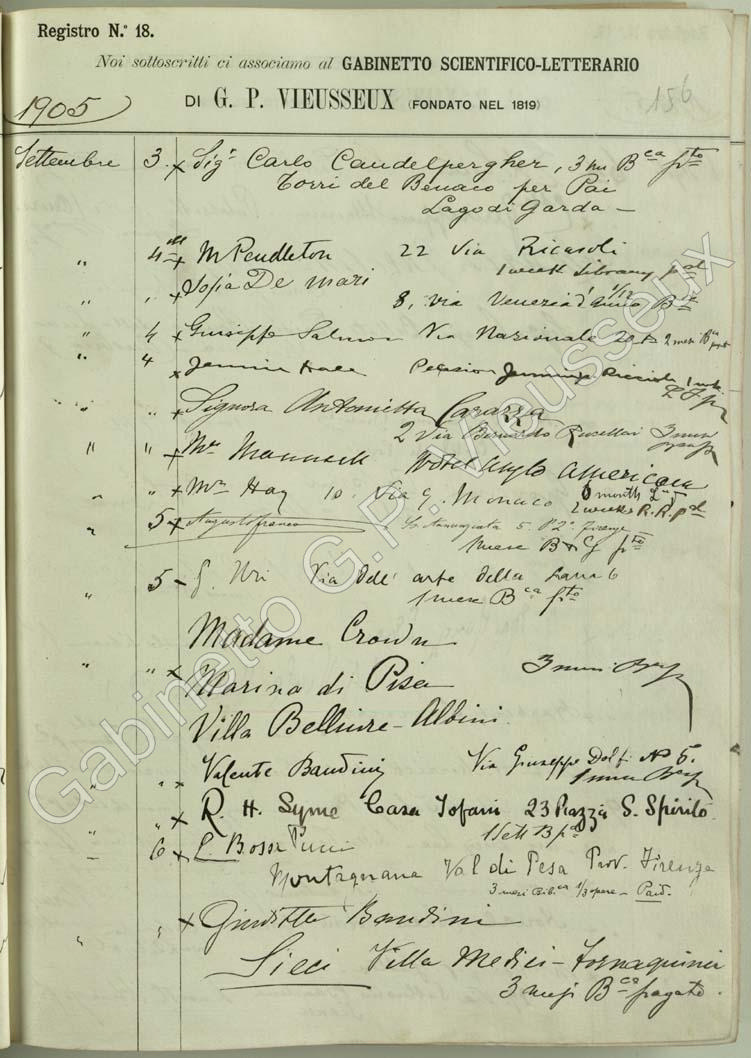 Registro N.º 18.
Noi sottoscritti ci associamo al GABINETTO SCIENTIFICO-LETTERARIO
DI G. P. VIEUSSEUX (FONDATO NEL 1819)
156
1905
Settembre 3. x Sigr Carlo Candelpergher, 3 mi Bca pto
Torri del Benaco per Pai
Lago di Garda —
" 4 x M Pendleton 22 Via Ricasoli
1 week Library pd
" " x Sofia De Mari
8, via Venezia 1/12
" 4 x Giuseppe Salmon Via Nazionale 2 mesi Bca
" 4 x Pension Jennings Riccioli 1
" " x Signora Antonietta Carazza
2 Via Bernardo Rucellai 3
" " x Mr Hotel Anglo Americano
" " x Mrs Hay 10. Via G. Monaco
2 weeks R.R. pd
5 x Augusto Franco 5. P. 2º Firenze
1 mese B pto
" 5 - G. Via dell' arte della Lana 6
1 mese Bca pto
Madame Crown
" " x Marina di Pisa 3
Villa Albini
" " x Valente Bandini Via Giuseppe Dolfi No 5.
1
" " x R. H. Syme Casa Tofani 23 Piazza S. Spirito
1 Sett B pd
" 6 x L. Bossi Pucci
Montagnana Val di Pesa Prov. Firenze
3 mesi Bibca 1/3 opere — Paid.
" " x Giuditta Bandini
Sieci Villa Medici-Tornaquinci
3 mesi Bca pagato.
Gabinetto G.P. Vieusseux